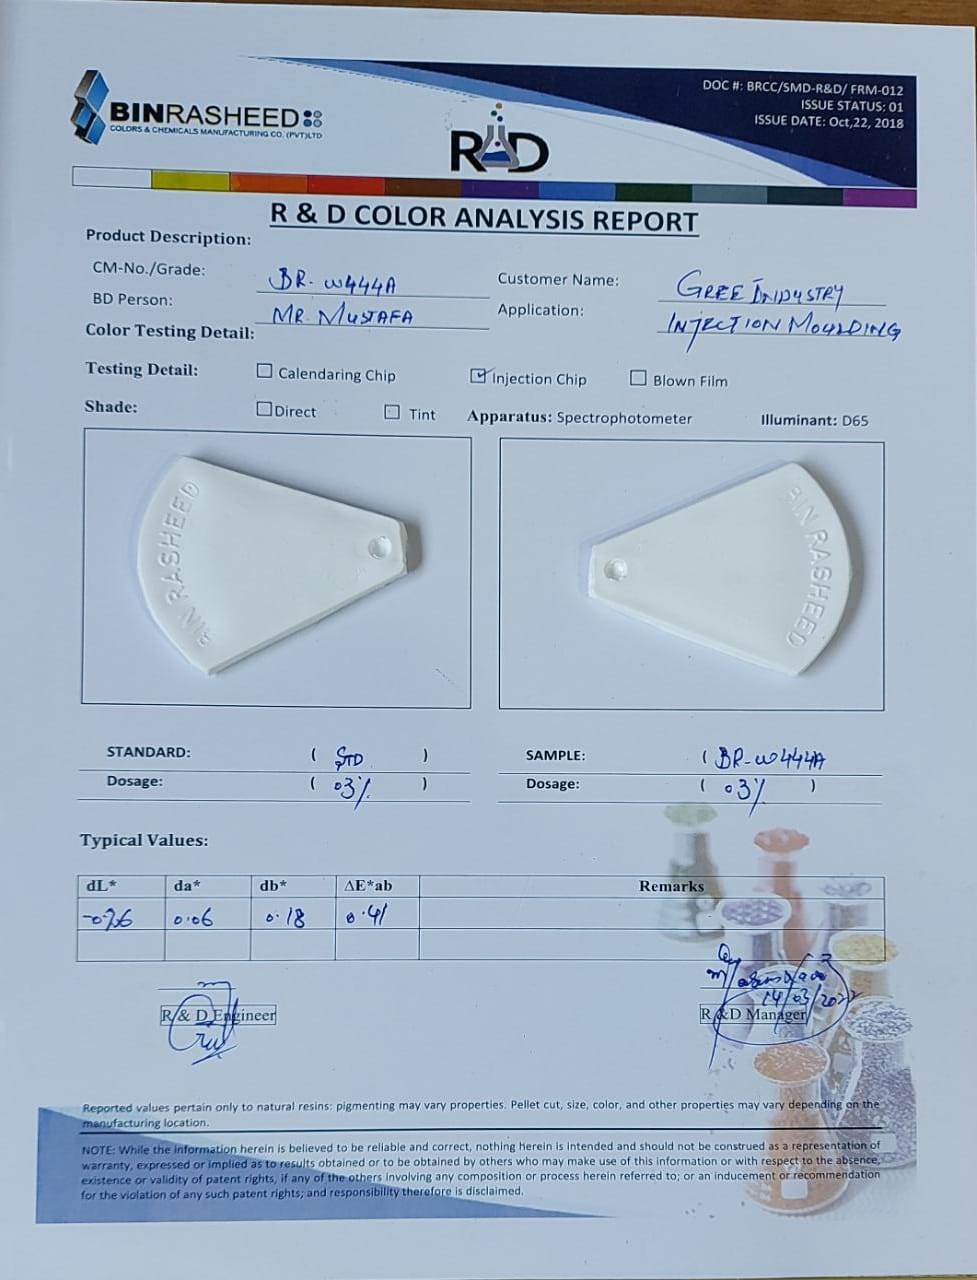 BINRASHEED
COLORS & CHEMICALS MANUFACTURING CO. (PVT)LTD
R&D
DOC #: BRCC/SMD-R&D/ FRM-012
ISSUE STATUS: 01
ISSUE DATE: Oct,22, 2018
R & D COLOR ANALYSIS REPORT
Product Description:
CM-No./Grade: BR-W444A Customer Name: GREE INDUSTRY
BD Person: MR. MUSTAFA Application: INJECTION MOULDING
Color Testing Detail:
Testing Detail: Calendaring Chip Injection Chip Blown Film
Shade: Direct Tint Apparatus: Spectrophotometer Illuminant: D65
BIN RASHEED
BIN RASHEED
STANDARD: ( STD ) SAMPLE: ( BR-W444A
Dosage: ( 03% ) Dosage: ( 03% )
Typical Values:
dL* da* db* ΔE*ab Remarks
0.06 0.18 0.41
14/03/2022
R & D Engineer R &D Manager
Reported values pertain only to natural resins: pigmenting may vary properties. Pellet cut, size, color, and other properties may vary depending on the
manufacturing location.
NOTE: While the information herein is believed to be reliable and correct, nothing herein is intended and should not be construed as a representation of
warranty, expressed or implied as to results obtained or to be obtained by others who may make use of this information or with respect to the absence,
existence or validity of patent rights, if any of the others involving any composition or process herein referred to; or an inducement or recommendation
for the violation of any such patent rights; and responsibility therefore is disclaimed.